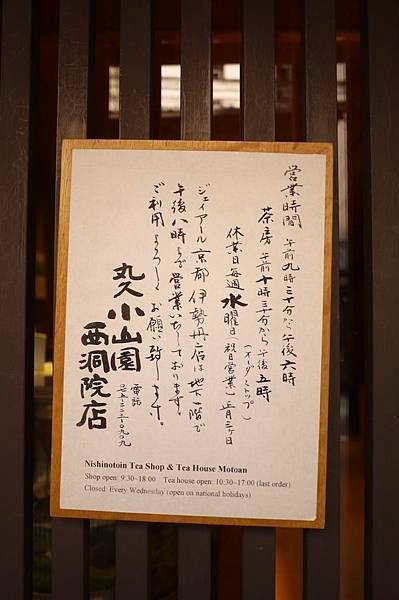 営業時間 午前九時三十分から午後六時
茶房 午前十時三十分から午後五時
（オーダーストップ）
休業日 毎週水曜日（祝日営業）正月三ヶ日
ジェイアール京都伊勢丹店は地下一階で
午後八時まで営業いたしております。
ご利用よろしくお願い致します。
丸久小山園
西洞院店
電話
Nishinotoin Tea Shop & Tea House Motoan
Shop open: 9:30~18:00 Tea house open: 10:30~17:00 (last order)
Closed: Every Wednesday (open on national holidays)